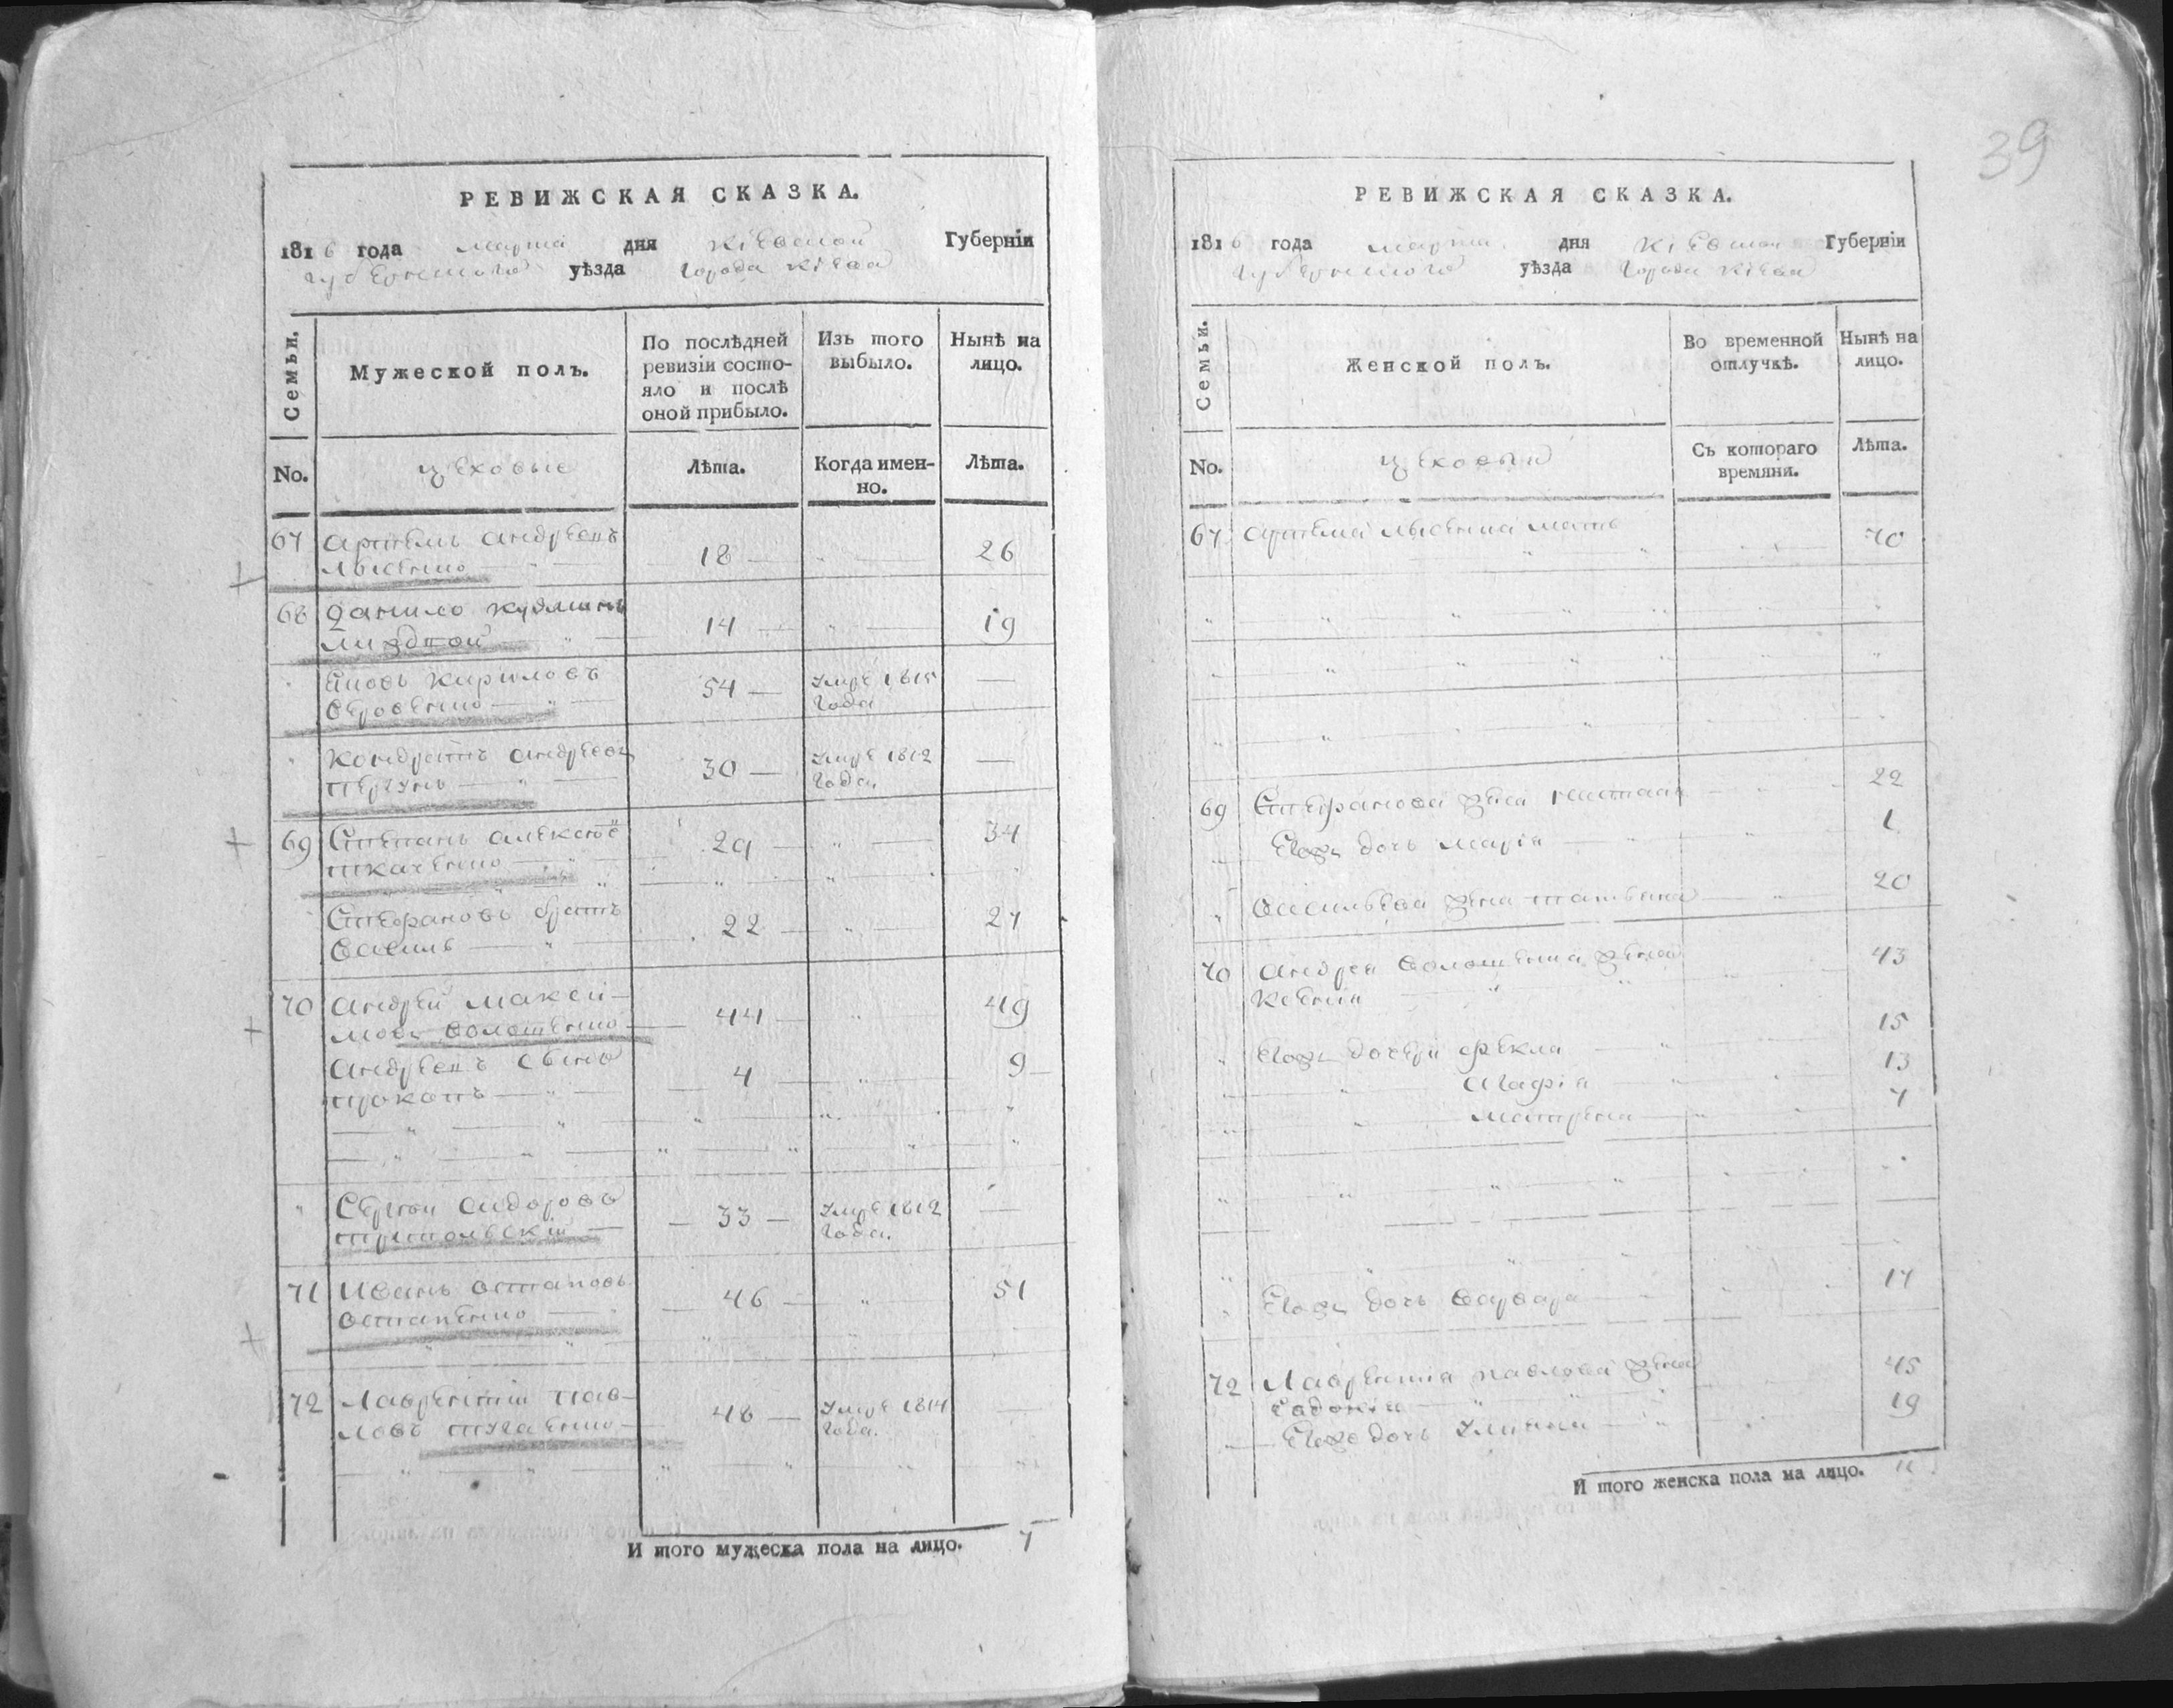 39
РЕВИЖСКАЯ СКАЗКА.
1816 года марта дня Кіевской Губерніи
губернского уѣзда города Кіева
Семьи.
Мужеской полъ.
По послѣдней ревизіи состо-
яло и послѣ оной прибыло.
Изъ того выбыло.
Нынѣ на лицо.
No.
цеховые
Лѣта.
Когда имен-
но.
Лѣта.
67 Артемъ Андреевъ
Лысенко 18 26
68 Данило
14 19
Яковъ Кириловъ 54 Умре 1815
года
Кондратъ Андреевъ 30 Умре 1812
года.
69 Степанъ Алексѣе
Ткаченко 29 34
Стефановъ братъ
Василь 22 27
70 Андрей Макси-
мовъ Волошенко 44 49
Андреевъ сынъ
Прокопъ 4 9
Сергей Сидоровъ
Трипольскій 33 Умре 1812
года.
71 Иванъ Остаповъ
Остапенко 46 51
72 Лаврентій Пав-
ловъ 48 Умре 1814
года.
И того мужеска пола на лицо. 7
РЕВИЖСКАЯ СКАЗКА.
1816 года марта дня Кіевской Губерніи
губернского уѣзда города Кіева
Семьи.
Женской полъ.
Во временной отлучкѣ.
Нынѣ на лицо.
No.
цеховые
Съ котораго времяни.
Лѣта.
67 Артема Лысенка мать 70
69 Стефанова жена 22
Его дочь Марія 1
Васильева жена Татьяна 20
70 Андрея Волошенка жена 43
Ксенія
Его дочери Фекла 15
Агафія 13
Матрена 7
Его дочь Варвара 17
72 Лаврентія Павлова жена 45
Его дочь 19
И того женска пола на лицо. 11